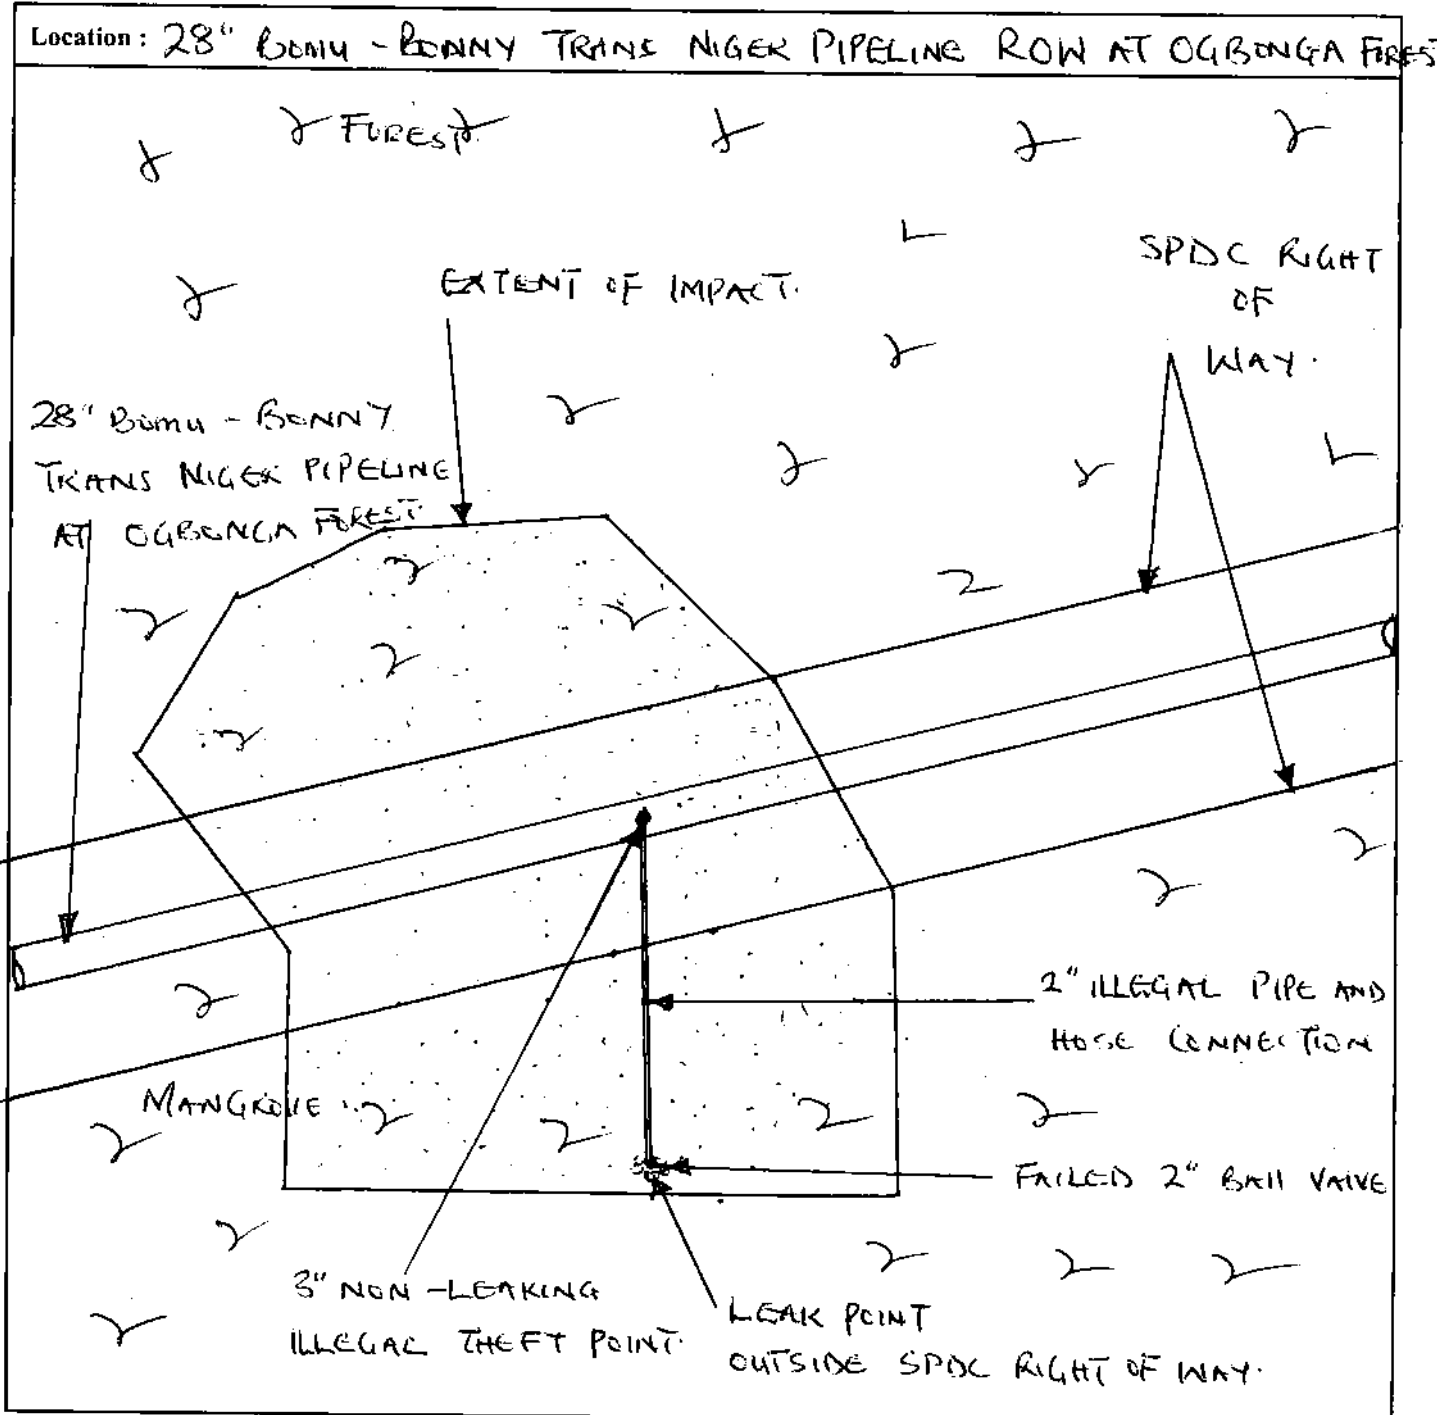 Location : 28" BOMU - BONNY TRANS NIGER PIPELINE ROW AT OGBONGA FOREST
FOREST
EXTENT OF IMPACT.
SPDC RIGHT
OF
WAY.
28" BOMU - BONNY
TRANS NIGER PIPELINE
AT OGBONGA FOREST
2" ILLEGAL PIPE AND
HOSE CONNECTION
MANGROVE
FAILED 2" BALL VALVE
3" NON-LEAKING
ILLEGAL THEFT POINT.
LEAK POINT
OUTSIDE SPDC RIGHT OF WAY.